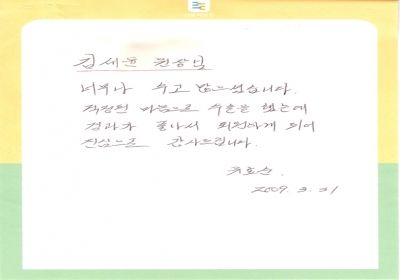 김세윤 원장님
너무나 수고 많으셨습니다.
걱정된 마음으로 수술을 했는데
결과가 좋아서 퇴원하게 되어
진심으로 감사드립니다.
2009. 3. 31